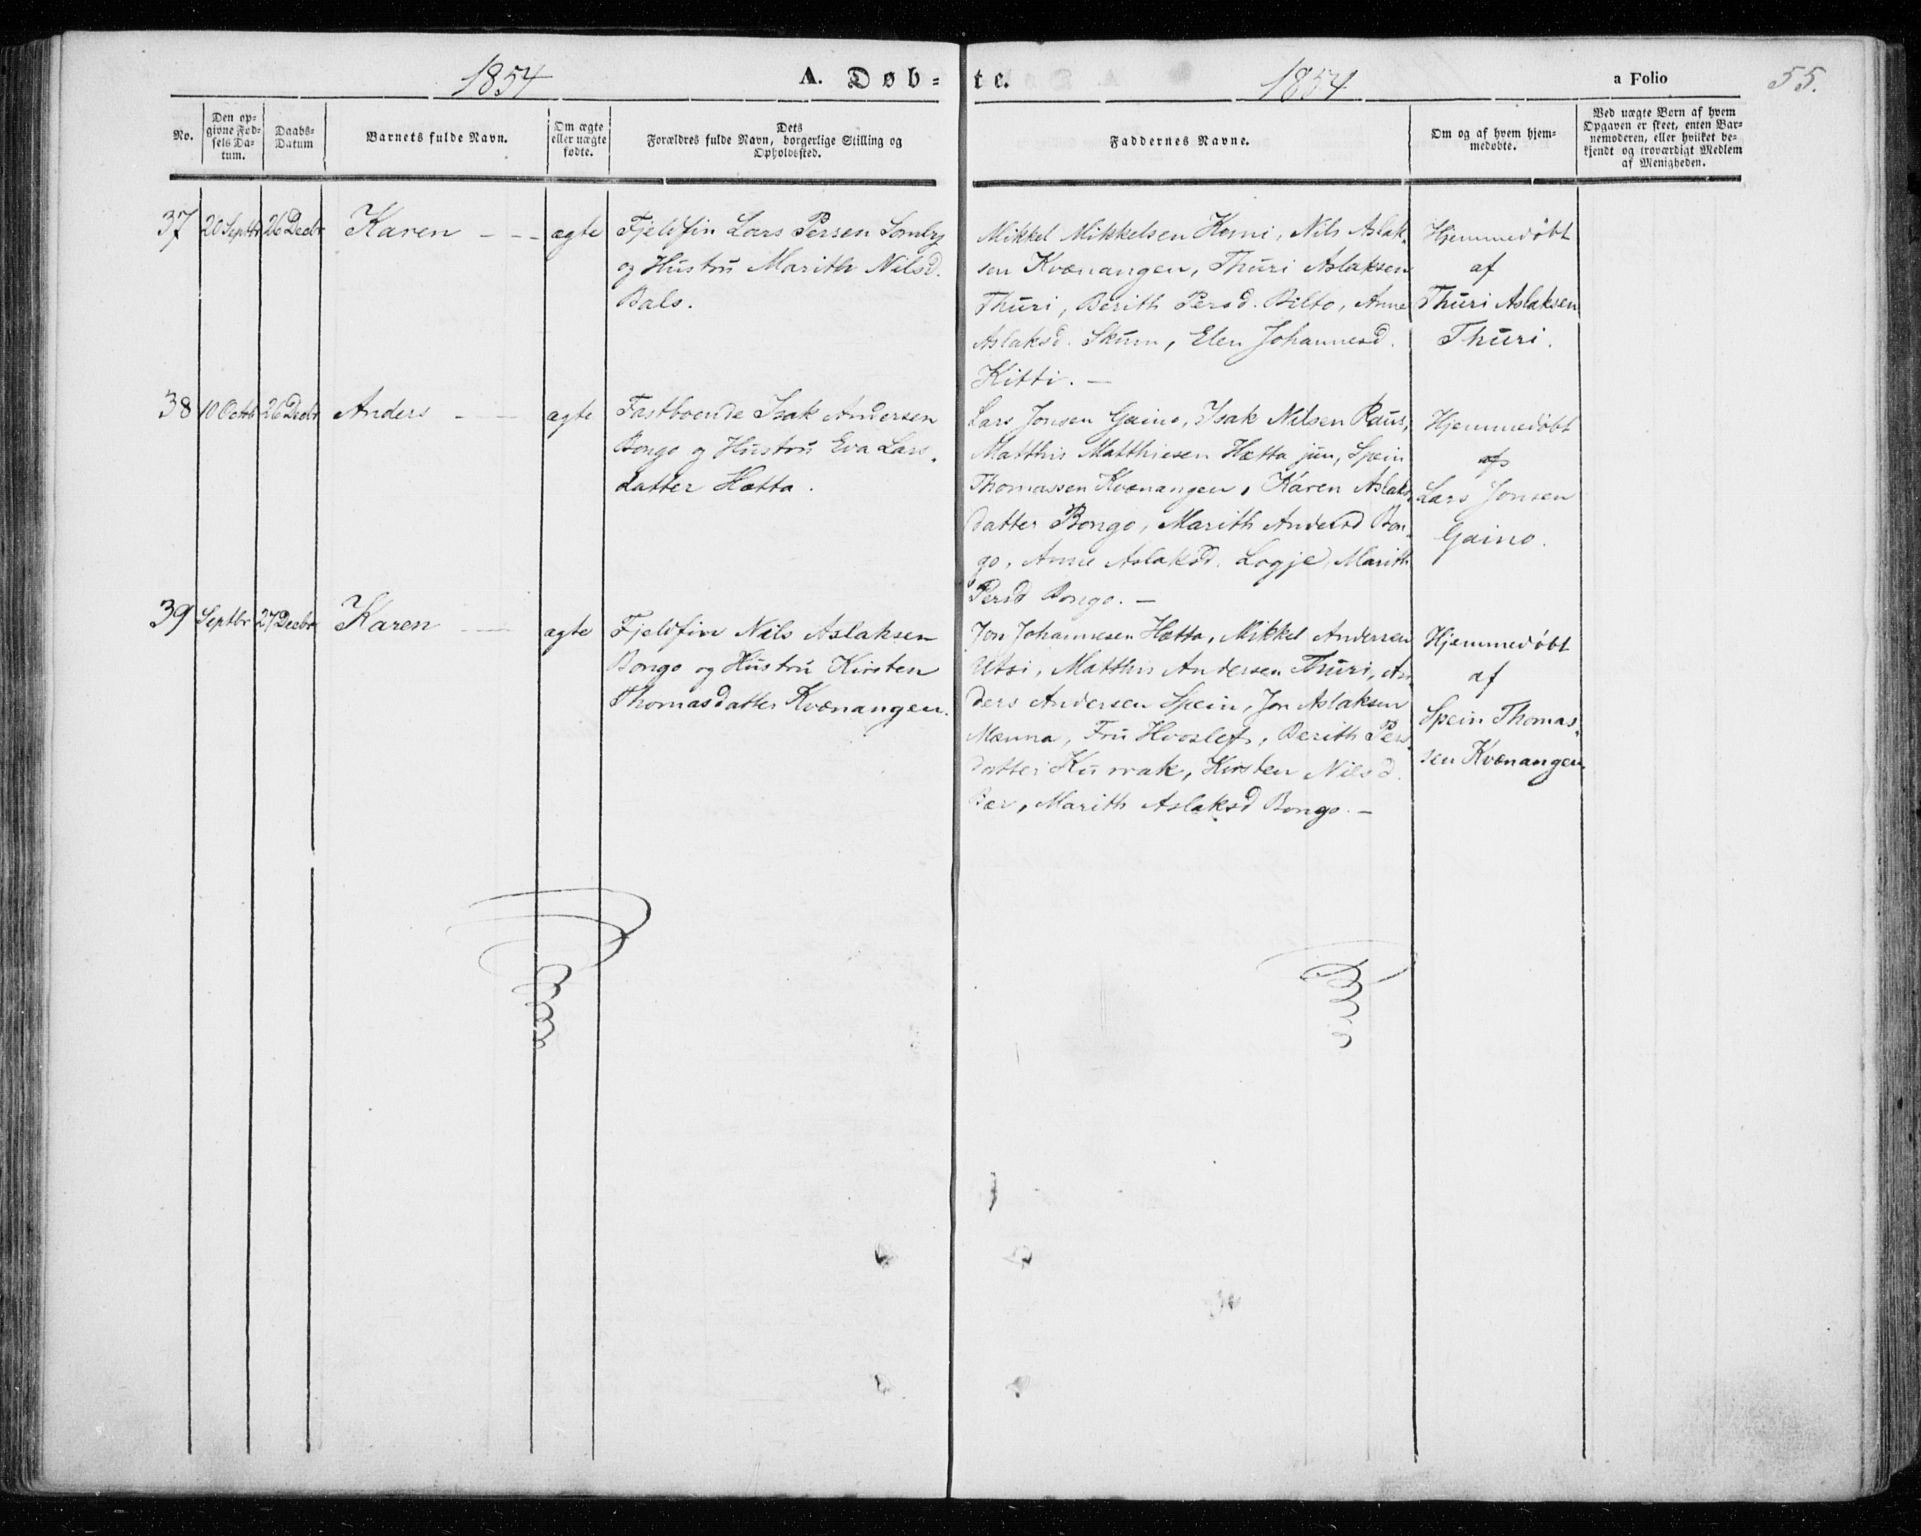 1854 A. Døb= te. 1854 a Folio 55.
No.
Den op-
givne Fød-
sels Da-
tum.
Daabs-
Datum
Barnets fulde Navn.
Om ægte
eller uægte
fødte.
Dets
Forældres fulde Navn, borgerlige Stilling og
Opholdssted.
Faddernes Navne.
Om og af hvem hjem-
medøbte.
Ved uægte Børn af hvem
Opgaven er skeet, enten Bar-
nemoderen, eller hvilket be-
kjendt og troværdigt Medlem
af Menigheden.
37 20 Septbr 26 Decbr Karen - - - ægte
Fjeldfin Lars Persen Somby
og Hustru Marith Nilsd.
Bals.
Mikkel Mikkelsen Kemi, Nils Aslak-
sen Kvænangen, Thuri Aslaksen
Thuri, Berith Persd. Bilto, Anne
Aslaksd. Skum, Elen Johannesd.
Kitti. —
Hjemmedøbt
af
Thuri Aslaksen
Thuri.
38 10 Octbr 26 Decbr Anders - - ægte
Fastboende Isak Andersen
Bongo og Hustru Eva Lars-
datter Hætta.
Lars Jonsen Gaino, Isak Nilsen Raus,
Matthis Matthiesen Hætta jun, Spein
Thomassen Kvænangen, Karen Aslaks-
datter Bongo, Marith Andersd Bon-
go, Anne Aslaksd. Logje, Marith
Persd Bongo. —
Hjemmedøbt
af
Lars Jonsen
Gaino.
39 Septbr 27 Decbr Karen - - ægte
Fjeldfin Nils Aslaksen
Bongo og Hustru Kirsten
Thomasdatter Kvænangen.
Jon Johannesen Hætta, Mikkel Andersen
Utsi, Matthis Andersen Thuri, An-
ders Andersen Spein, Jon Aslaksen
Mænna, Fru Hvoslef, Berith Pers-
datter Kurrak, Kirsten Nilsd.
Bær, Marith Aslaksd Bongo. —
Hjemmedøbt
af
Spein Thomas-
sen Kvænangen